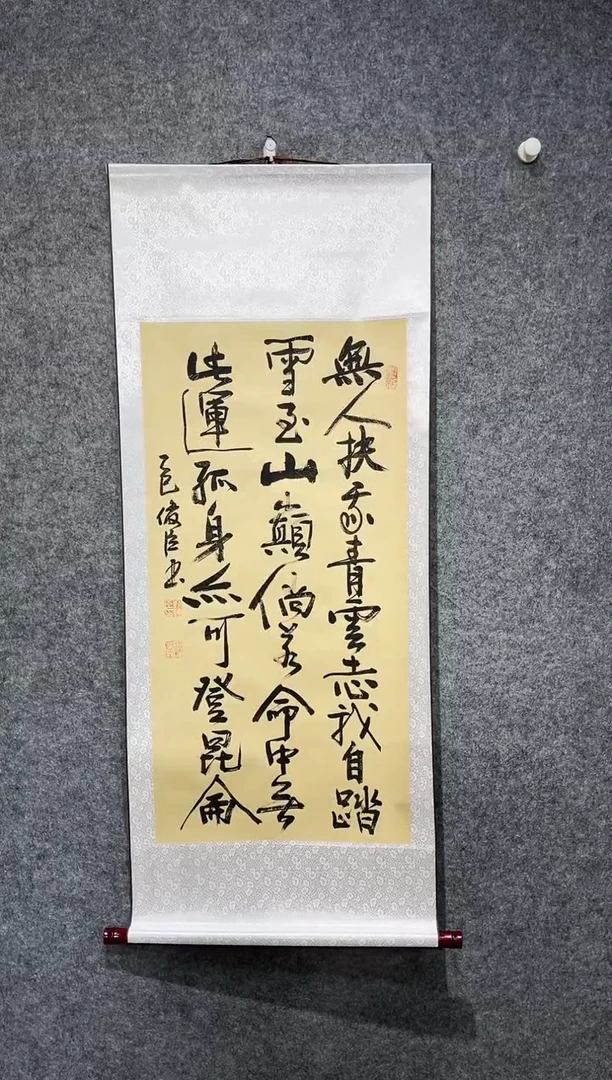 無人扶我青雲志我自踏
雪至山巔倘若命中无
此運孤身亦可登昆侖
乙巳俊臣书